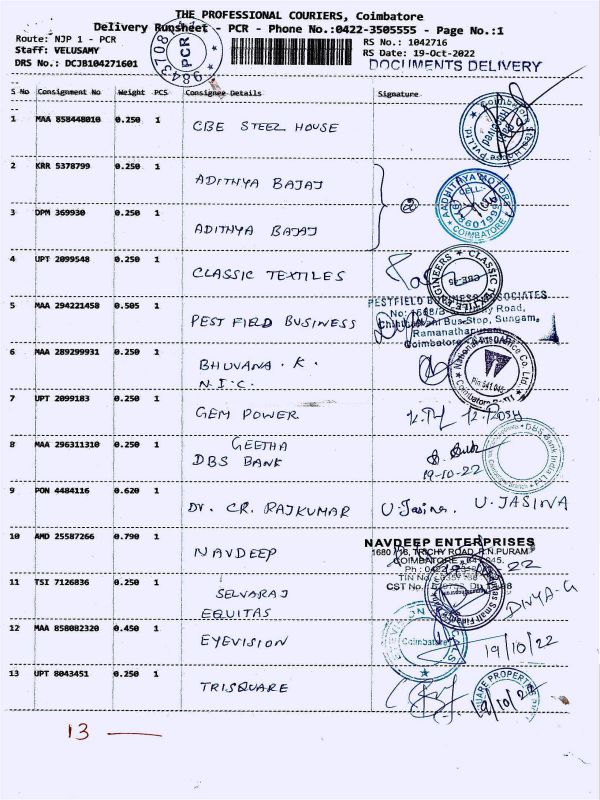 THE PROFESSIONAL COURIERS, Coimbatore
Delivery Runsheet - PCR - Phone No.:0422-3505555 - Page No.:1
Route: NJP 1 - PCR
RS No.: 1042716
Staff: VELUSAMY
RS Date: 19-Oct-2022
DRS No.: DCJB104271601
DOCUMENTS DELIVERY
PCR
S No Consignment No Weight PCS Consignee Details Signature
1 MAA 858448010 0.250 1 CBE STEEL HOUSE
2 KRR 5378799 0.250 1 ADITHYA BAJAJ
3 DPM 369930 0.250 1 ADITHYA BAJAJ
AADHITAYA MOTOR
CELL:
COIMBATORE
4 UPT 2099548 0.250 1 CLASSIC TEXTILES
CLASSIC
ENGINEERS
CBE-45
5 MAA 294221458 0.505 1 PEST FIELD BUSINESS
PESTFIELD BUSINESS ASSOCIATES
Road,
Bus Stop, Sungam,
Ramanathapuram
Coimbatore
6 MAA 289299931 0.250 1 BHUVANA . K.
N.I.C.
7 UPT 2099183 0.250 1 GEM POWER
8 MAA 296311310 0.250 1 GEETHA
DBS BANK
19-10-22
DBS Bank India Ltd
9 PON 4484116 0.620 1 Dr. CR. RAJKUMAR U.Jasina. U.JASINA
10 AMD 25587266 0.790 1 NAVDEEP
NAVDEEP ENTERPRISES
1680 TRICHY ROAD, R.N.PURAM
COIMBATORE
CST No.
11 TSI 7126836 0.250 1 SELVARAJ
EQUITAS
DIVYA-G
12 MAA 858082320 0.450 1 EYEVISION
Coimbatore
19/10/22
13 UPT 8043451 0.250 1 TRISQUARE
19/10/22
13